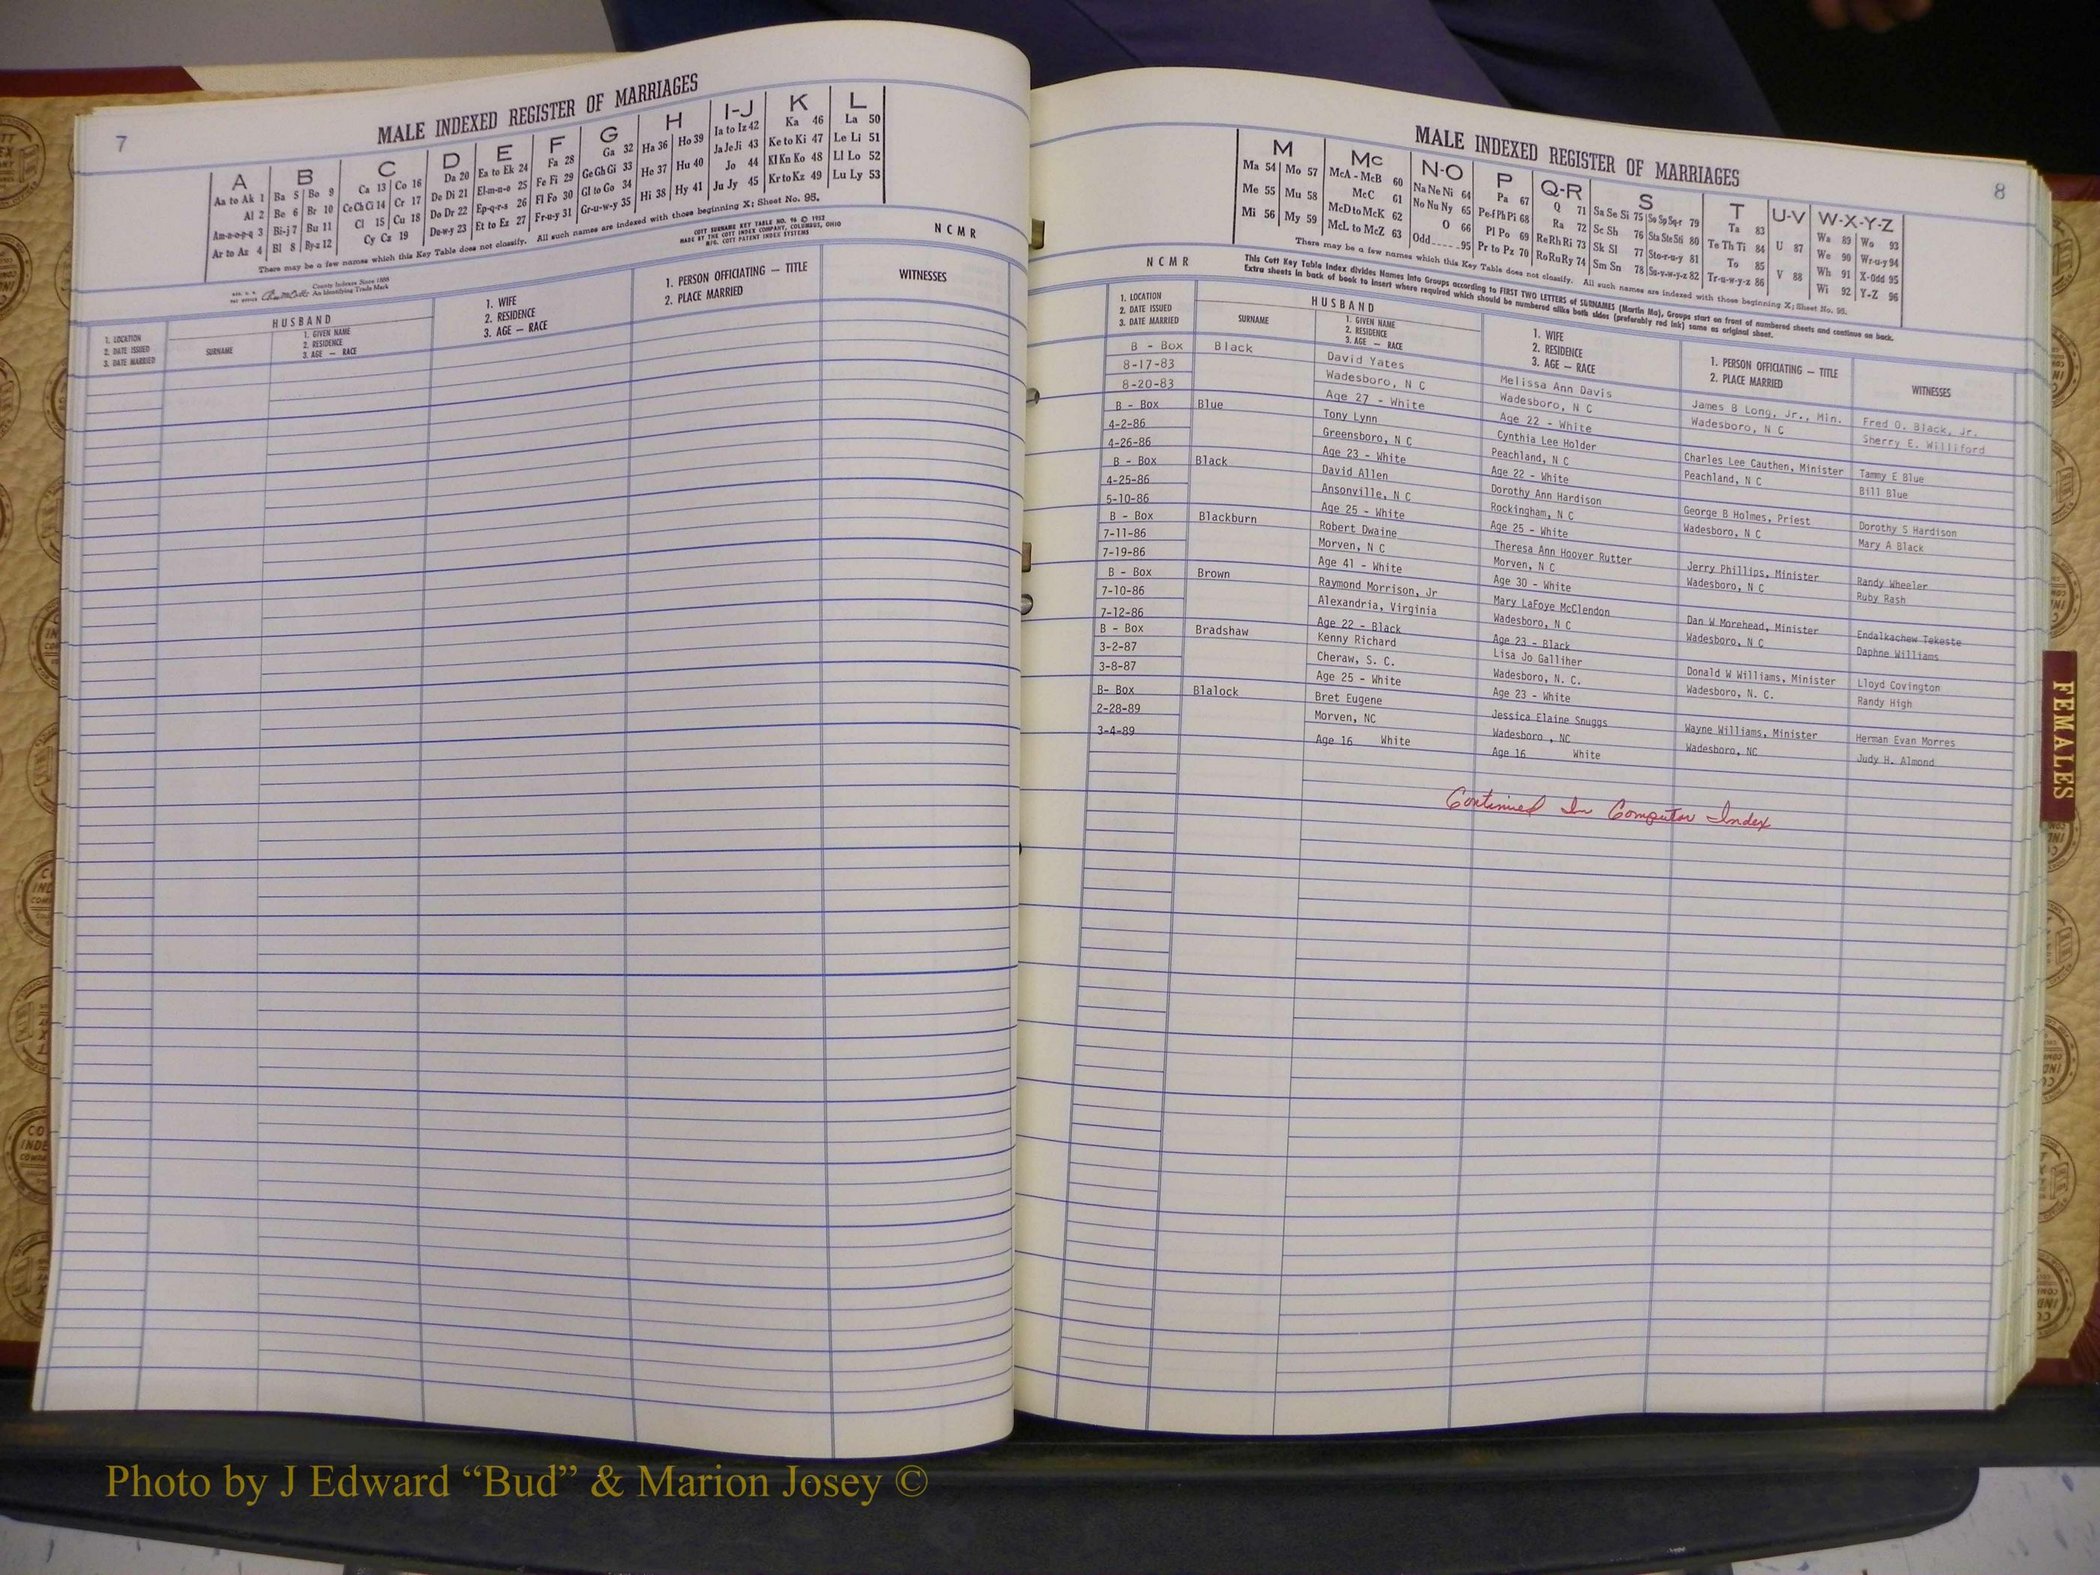 7
MALE INDEXED REGISTER OF MARRIAGES
A B C D E F G H I-J K L
Aa to Ak 1 Ba 5 Bo 9 Ca 13 Co 16 Da 20 Ea to Ek 24 Fa 28 Ga 32 Ha 36 Ho 39 Ia to Iz 42 Ka 46 La 50
Al 2 Be 6 Br 10 Ce Ch Ci 14 Cr 17 De Di 21 El-m-n-o 25 Fe Fi 29 Ge Gh Gi 33 He 37 Hu 40 Ja Je Ji 43 Ke to Ki 47 Le Li 51
Am-n-o-p-q 3 Bi-j 7 Bu 11 Cl 15 Cu 18 Do Dr 22 Ep-q-r-s 26 Fl Fo 30 Gl to Go 34 Hi 38 Hy 41 Jo 44 Kl Kn Ko 48 Ll Lo 52
Ar to Az 4 Bl 8 By-z 12 Cy Cz 19 Du-w-y 23 Et to Ez 27 Fr-u-y 31 Gr-u-w-y 35 Ju Jy 45 Kr to Kz 49 Lu Ly 53
There may be a few names which this Key Table does not classify. All such names are indexed with those beginning X; Sheet No. 95.
COTT SURNAME KEY TABLE NO. 96 © 1952
MADE BY THE COTT INDEX COMPANY, COLUMBUS, OHIO
MFG. COTT PATENT INDEX SYSTEMS
NCMR
County Indexes Since 1888
An Identifying Trade Mark
1. LOCATION
2. DATE ISSUED
3. DATE MARRIED
HUSBAND
SURNAME
1. GIVEN NAME
2. RESIDENCE
3. AGE — RACE
1. WIFE
2. RESIDENCE
3. AGE — RACE
1. PERSON OFFICIATING — TITLE
2. PLACE MARRIED
WITNESSES
MALE INDEXED REGISTER OF MARRIAGES
8
M Mc N-O P Q-R S T U-V W-X-Y-Z
Ma 54 Mo 57 McA - McB 60 Na Ne Ni 64 Pa 67 Q 71 Sa Se Si 75 So Sp Sq-r 79 Ta 83 U 87 Wa 89 Wo 93
Me 55 Mu 58 McC 61 No Nu Ny 65 Pe-f Ph Pi 68 Ra 72 Sc Sh 76 Sta Ste Sti 80 Te Th Ti 84 V 88 We 90 Wr-u-y 94
Mi 56 My 59 McD to McK 62 O 66 Pl Po 69 Re Rh Ri 73 Sk Sl 77 Sto-r-u-y 81 To 85 Wh 91 X-Odd 95
McL to McZ 63 Odd 95 Pr to Pz 70 Ro Ru Ry 74 Sm Sn 78 Su-v-w-y-z 82 Tr-u-w-y-z 86 Wi 92 Y-Z 96
There may be a few names which this Key Table does not classify. All such names are indexed with those beginning X; Sheet No. 95.
NCMR
This Cott Key Table Index divides Names into Groups according to FIRST TWO LETTERS of SURNAMES (Martin Ma), Groups start on front of numbered sheets and continue on back.
Extra sheets in back of book to insert where required which should be numbered alike both sides (preferably red ink) same as original sheet.
1. LOCATION
2. DATE ISSUED
3. DATE MARRIED
HUSBAND
SURNAME
1. GIVEN NAME
2. RESIDENCE
3. AGE — RACE
1. WIFE
2. RESIDENCE
3. AGE — RACE
1. PERSON OFFICIATING — TITLE
2. PLACE MARRIED
WITNESSES
B - Box Black David Yates Melissa Ann Davis James B Long, Jr., Min. Fred O. Black, Jr.
8-17-83 Wadesboro, N C Wadesboro, N C Wadesboro, N C Sherry E. Williford
8-20-83 Age 27 - White Age 22 - White
B - Box Blue Tony Lynn Cynthia Lee Holder Charles Lee Cauthen, Minister Tammy E Blue
4-2-86 Greensboro, N C Peachland, N C Peachland, N C Bill Blue
4-26-86 Age 23 - White Age 22 - White
B - Box Black David Allen Dorothy Ann Hardison George B Holmes, Priest Dorothy S Hardison
4-25-86 Ansonville, N C Rockingham, N C Wadesboro, N C Mary A Black
5-10-86 Age 25 - White Age 25 - White
B - Box Blackburn Robert Dwaine Theresa Ann Hoover Rutter Jerry Phillips, Minister Randy Wheeler
7-11-86 Morven, N C Morven, N C Wadesboro, N C Ruby Rash
7-19-86 Age 41 - White Age 30 - White
B - Box Brown Raymond Morrison, Jr Mary LaFoye McClendon Dan W Morehead, Minister Endalkachew Tekeste
7-10-86 Alexandria, Virginia Wadesboro, N C Wadesboro, N C Daphne Williams
7-12-86 Age 22 - Black Age 23 - Black
B - Box Bradshaw Kenny Richard Lisa Jo Galliher Donald W Williams, Minister Lloyd Covington
3-2-87 Cheraw, S. C. Wadesboro, N. C. Wadesboro, N. C. Randy High
3-8-87 Age 25 - White Age 23 - White
B- Box Blalock Bret Eugene Jessica Elaine Snuggs Wayne Williams, Minister Herman Evan Morres
2-28-89 Morven, NC Wadesboro , NC Wadesboro, NC Judy H. Almond
3-4-89 Age 16 White Age 16 White
Continued In Computer Index
FEMALES
Photo by J Edward “Bud” & Marion Josey ©